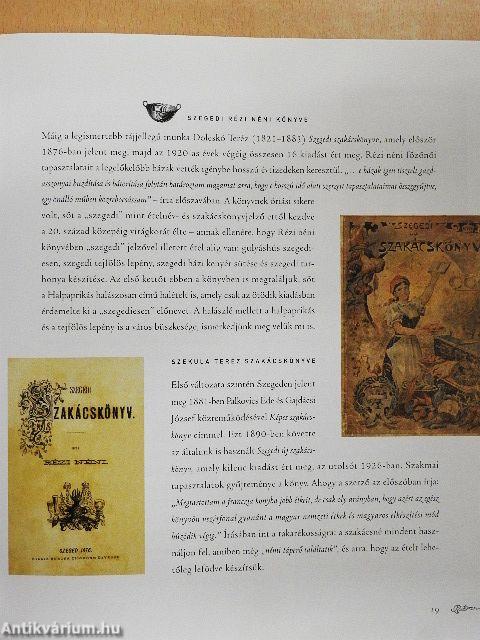 SZEGEDI RÉZI NÉNI KÖNYVE
Máig a legismertebb tájjellegű munka Doleskó Teréz (1821–1883) Szegedi szakácskönyve, amely először
1876-ban jelent meg, majd az 1920-as évek végéig összesen 16 kiadást ért meg. Rézi néni főzőnői
tapasztalatait a legelőkelőbb házak vették igénybe hosszú évtizedeken keresztül. „… e házak igen tisztelt gazd-
asszonyai buzdítása és bátorítása folytán határoztam magamat arra, hogy e hosszú idő alatt szerzett tapasztalataimat összegyűjtve,
egy önálló műben közrebocsássam" – írta előszavában. A könyvnek óriási sikere
volt, sőt a „szegedi" mint ételnév- és szakácskönyvjelző ettől kezdve
a 20. század közepéig virágkorát élte – annak ellenére, hogy Rézi néni
könyvében „szegedi" jelzővel illetett étel alig van: gulyáshús szegedi-
esen, szegedi tejfölös lepény, szegedi házi kenyér sütése és szegedi tar-
honya készítése. Az első kettőt ebben a könyvben is megtaláljuk, sőt
a Halpaprikás halászosan című halételt is, amely csak az ötödik kiadásban
érdemelte ki a „szegediesen" előnevet. A halászlé mellett a halpaprikás
és a tejfölös lepény is a város büszkesége, ismerkedjünk meg velük mi is.
SZEGEDI
SZAKÁCSKÖNYV
SZEKULA TERÉZ SZAKÁCSKÖNYVE
Első változata szintén Szegeden jelent
meg 1881-ben Palkovics Ede és Gajdácsi
József közreműködésével Képes szakács-
könyv címmel. Ezt 1890-ben követte
az általunk is használt Szegedi új szakács-
könyv, amely kilenc kiadást ért meg, az utolsót 1926-ban. Szakmai
tapasztalatok gyűjteménye a könyv. Ahogy a szerző az előszóban írja:
„Megtartottam a franczia konyha jobb ételeit, de csak oly arányban, hogy azért az egész
könyvön vezérfonal gyanánt a magyar nemzeti étkek és magyaros elkészítési mód
húzódik végig." Írásában int a takarékosságra: a szakácsné mindent hasz-
náljon fel, amiben még „némi táperő találtatik", és arra, hogy az ételt lehe-
tőleg lefödve készítsük.
SZEGEDI
SZAKÁCSKÖNYV.
RÉZI NÉNI.
SZEGED 1876.
19
Antikvárium.hu